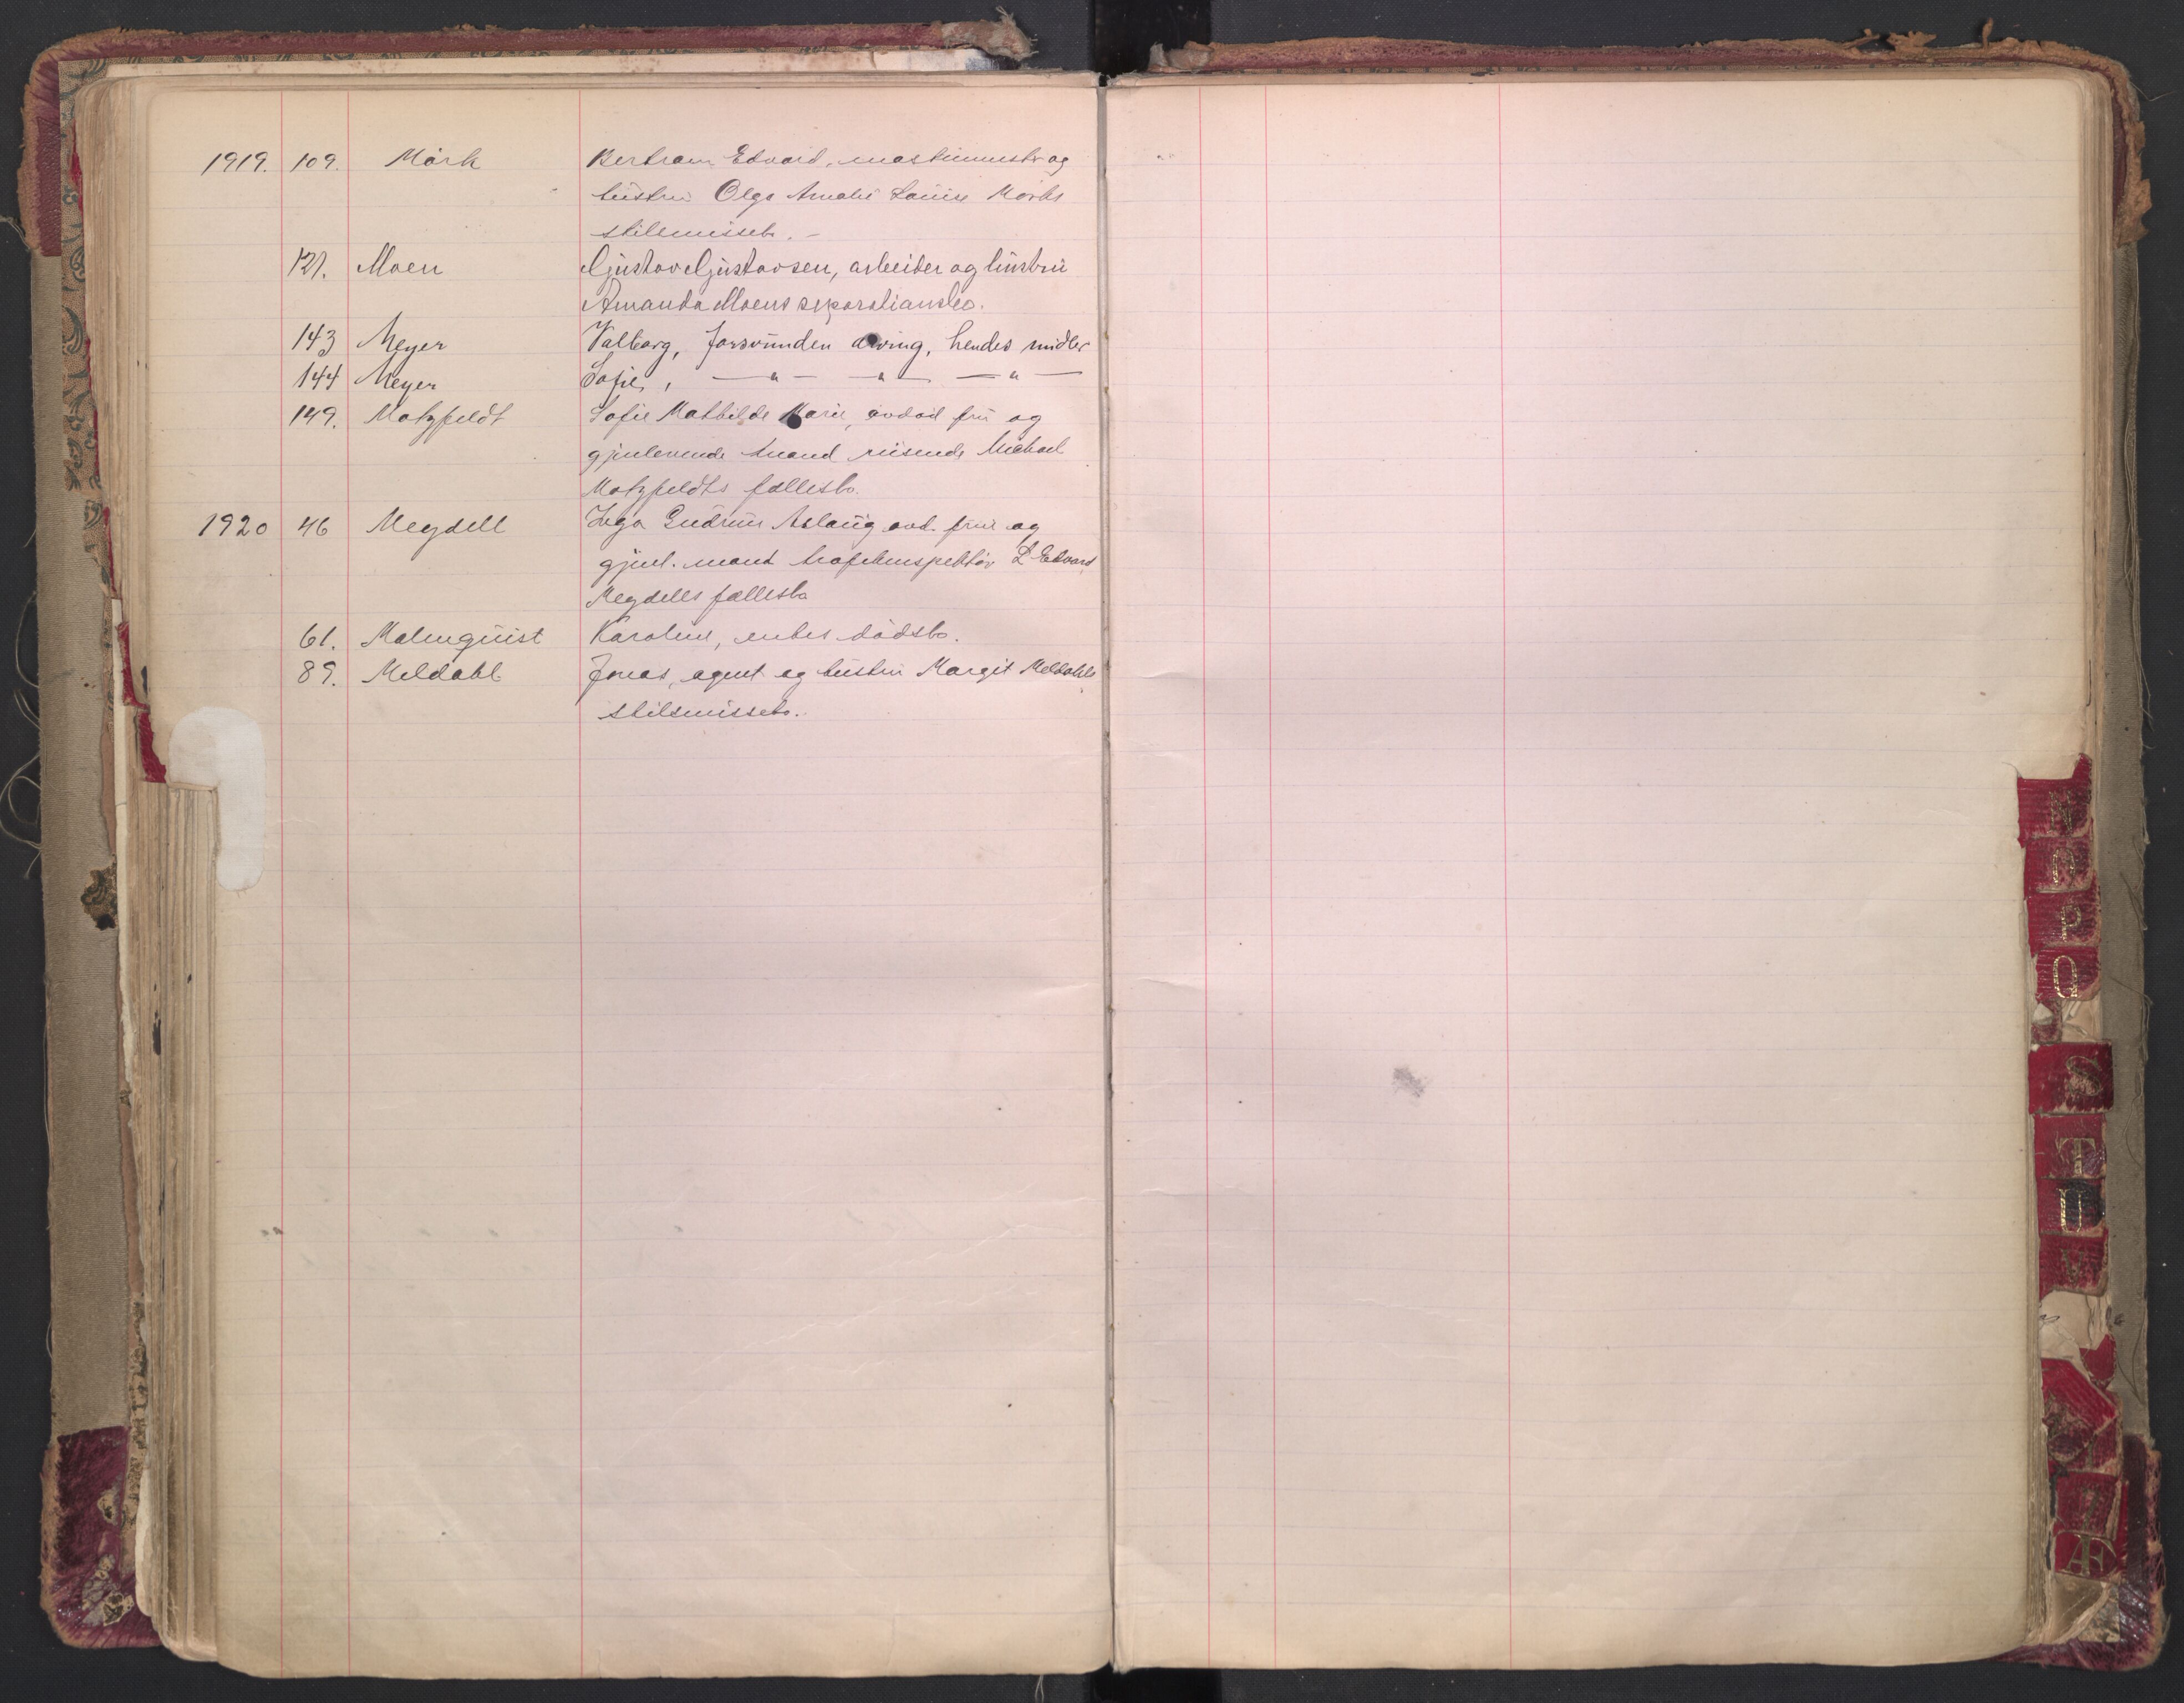 1919. 109. Mörk Bertram Edvard, maskinmester og
hustru Olga Amalie Louise Mörks
skilsmissebo. -
121. Moen Gustav Gustavsen, arbeider og hustru
Amanda Moens separationsbo.
143 Meyer Valborg, forsvunden arving, hendes midler
144 Meyer Sofie, — " — — " — — " —
149. Motzfeldt Sofie Mathilde Marie, avdød frue og
gjenlevende mand reisende Michael
Motzfeldts fællesbo.
1920 46 Meydell Inga Gudrun Aslaug avd. frue og
gjenl. mand havneinspektör L Edvard
Meydells fællesbo
61. Malmquist Karoline, enkes dödsbo.
89. Meldahl Jonas, agent og hustru Margit Meldahls
skilsmissebo.
N
O
P
Q
S
T
U
V
Z
Æ